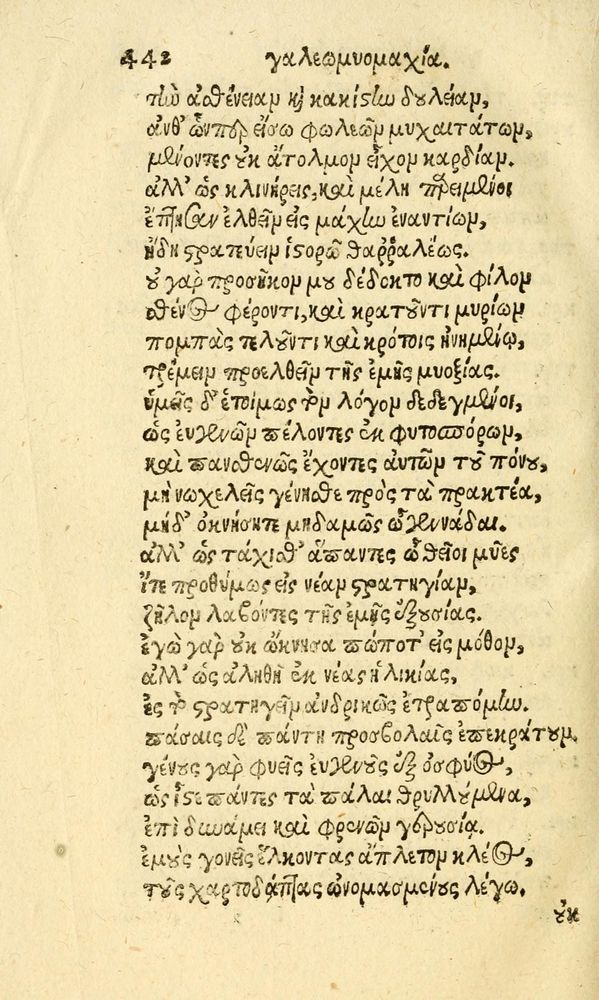 442 γαλεωμυομαχία.
τὴν ἀσθένειαν καὶ κακίστην δουλείαν,
ἀνθ' ὧνπερ εἴσω φωλεῶν μυχαιτάτων,
μένοντες οὐκ ἄτολμον εἶχον καρδίαν.
ἀλλ' ὡς κλινήρεις, καὶ μέλη πρειμένοι
ἔπηξαν ἐλθεῖν εἰς μάχην ἐναντίων,
ἤδη στρατεύειν ἱστορῶ θαῤῥαλέως.
οὐ γὰρ προσῆκον μου δέδοκτο καὶ φίλον
σθένος φέροντι, καὶ κρατοῦντι μυρίων
πομπὰς τελοῦντι καὶ κρότοις ᾐνημένῳ,
τρέμειν προελθεῖν τῆς ἐμῆς μυοξίας.
ὑμεῖς δ' ἑτοίμως τὸν λόγον δεδεγμένοι,
ὡς εὐγενῶν πέλοντες ἐκ φυτοσπόρων,
καὶ πανσθενῶς ἔχοντες αὐτῶν τοῦ πόνου,
μὴ νωχελεῖς γένησθε πρὸς τὰ πρακτέα,
μηδ' ὀκνήσητε μηδαμῶς ὦ γεννάδαι.
ἀλλ' ὡς τάχισθ' ἅπαντες ὦ θεῖοι μῦες
ἴτε προθύμως εἰς νέαν στρατηγίαν,
ζῆλον λαβόντες τῆς ἐμῆς ἐξουσίας.
ἐγὼ γὰρ οὐκ ὤκνησα πώποτ' εἰς μόθον,
ἀλλ' ὡς ἀληθῆ ἐκ νέας ἡλικίας,
ἐς τὸ στρατηγεῖν ἀνδρικῶς ἐτραπόμην.
πάσαις δὲ πάντη προσβολαῖς ἐπεκράτουν,
γένους γὰρ φυεὶς εὐγενοῦς ἐξ ὀσφύος,
ὡς ἴστε πάντες τὰ πάλαι θρυλλούμενα,
ἐπὶ δυνάμει καὶ φρενῶν γερουσίᾳ.
ἐμοὺς γονεῖς ἕλκοντας ἄπλετον κλέος,
τοὺς χαρτοδάπτας ὠνομασμένους λέγω.
οὐκ